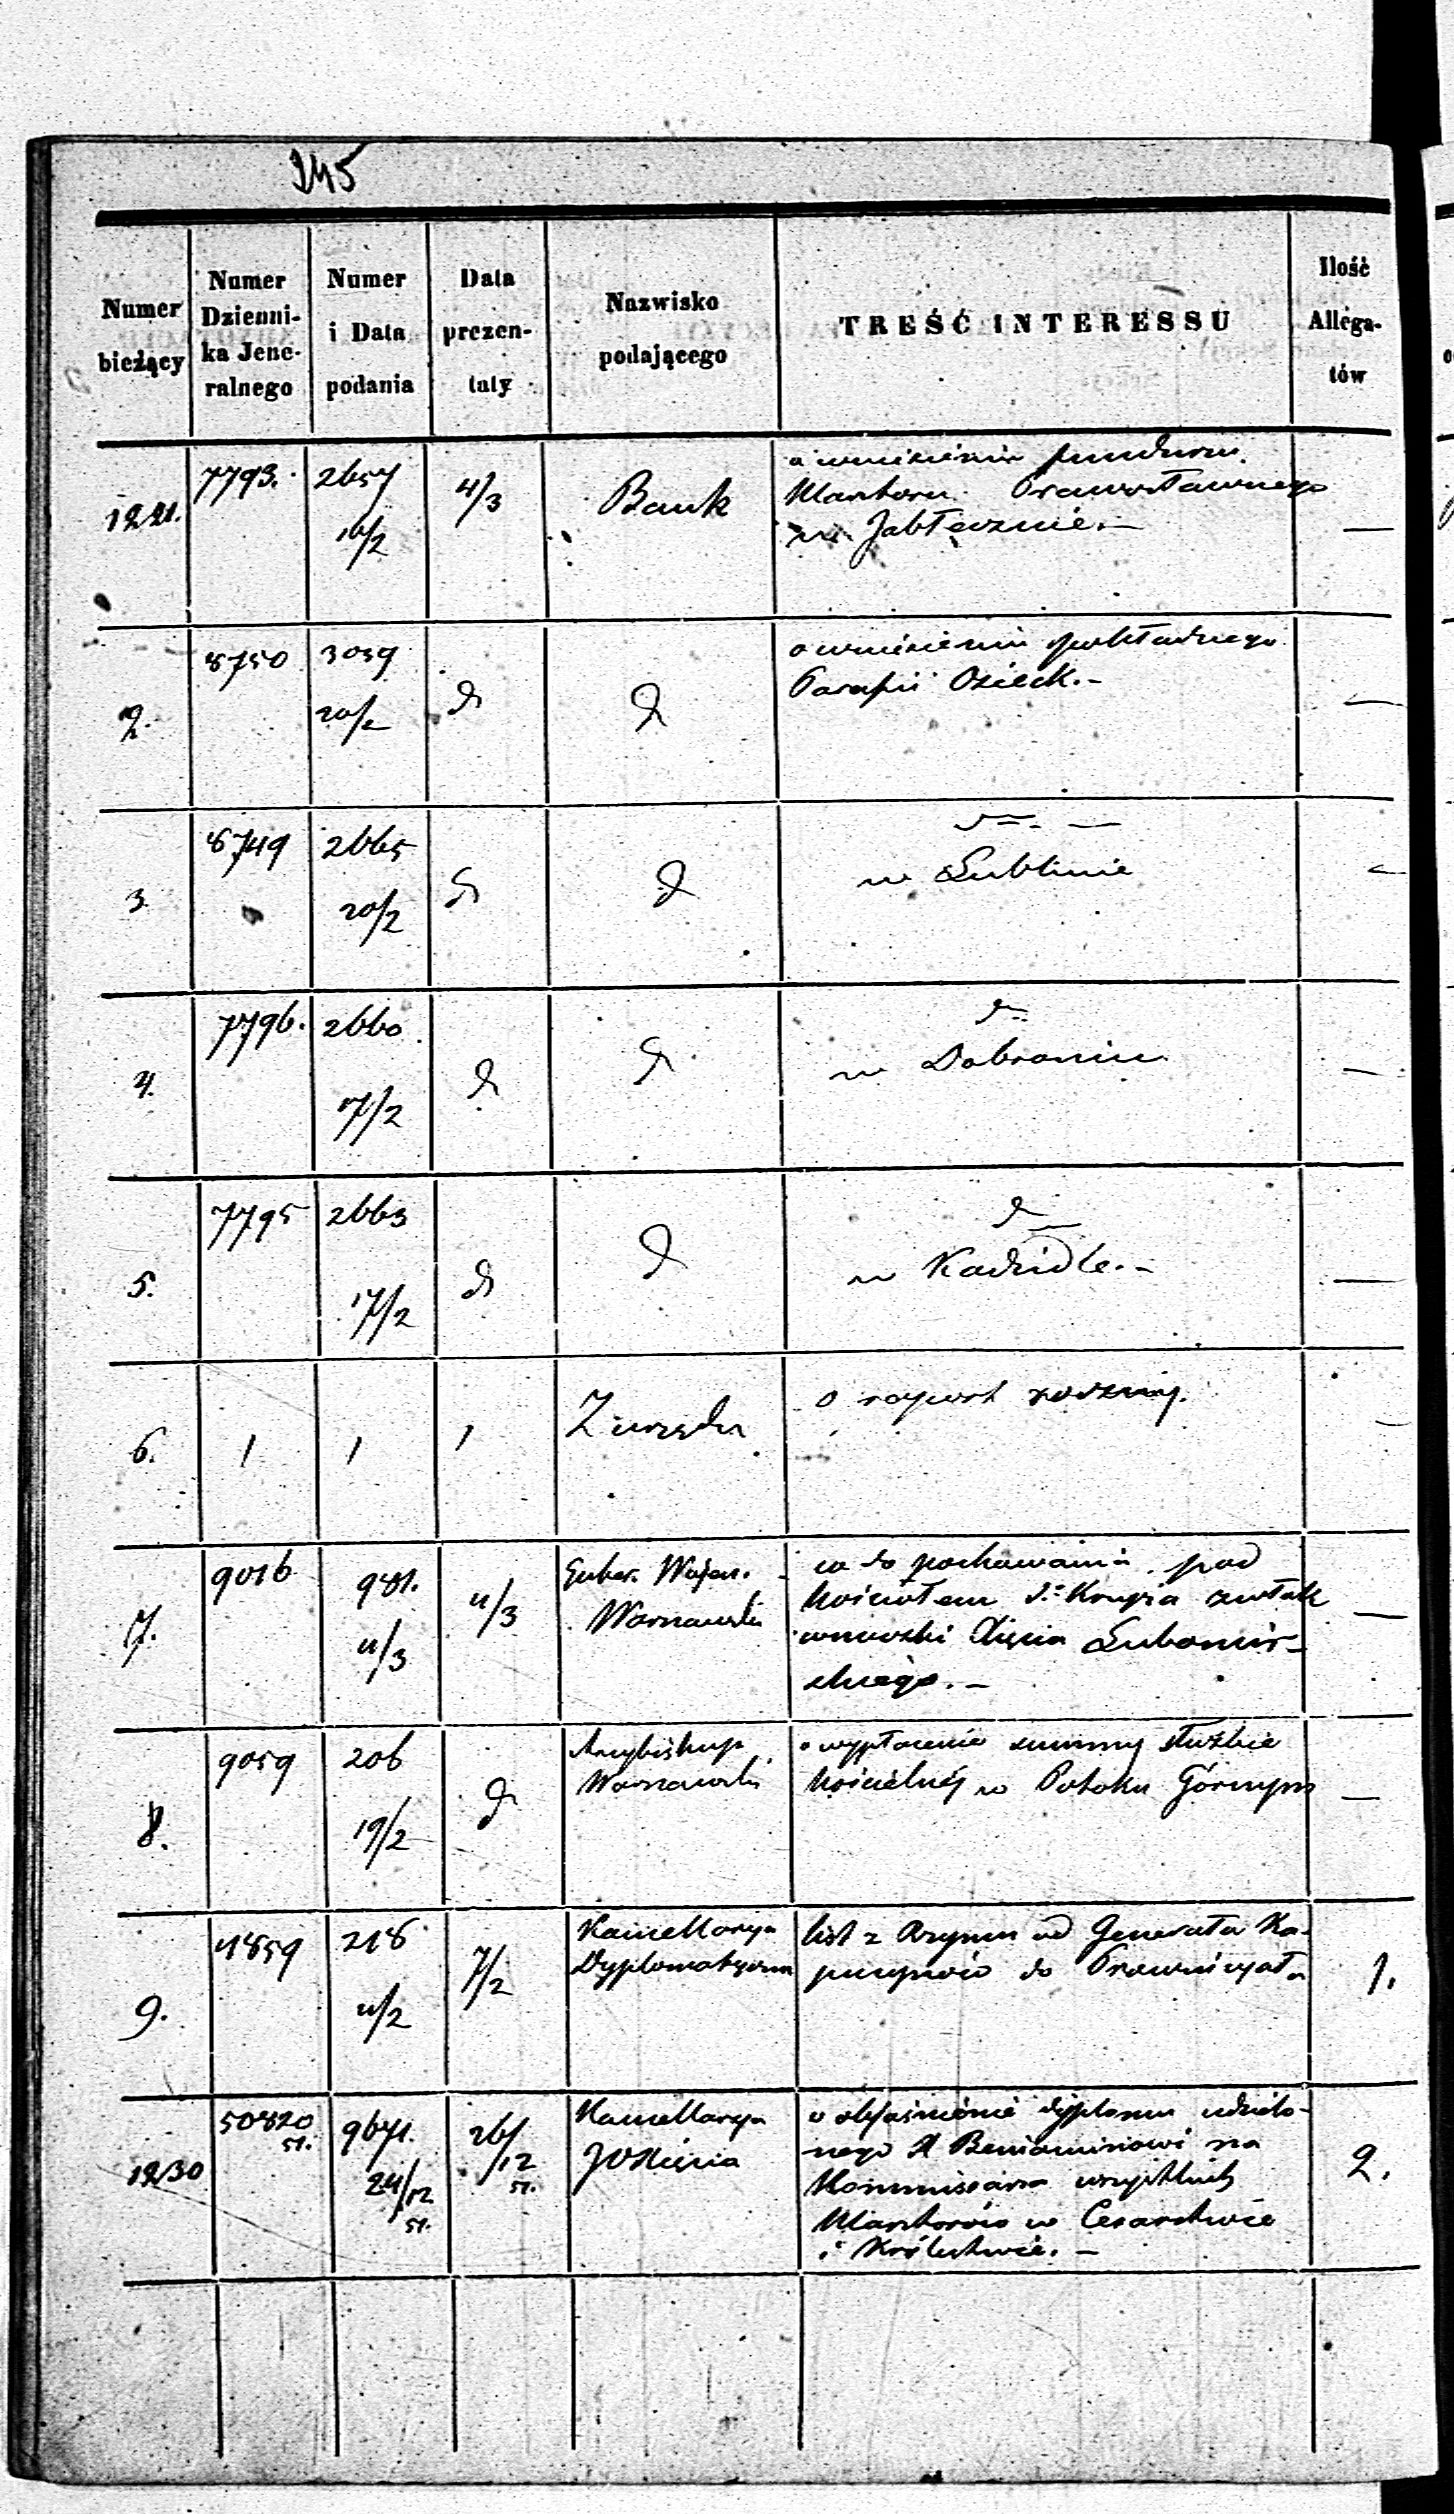 245
Numer bieżący
Numer Dzienni-ka Jene-ralnego
Numer i Data podania
Data prezen-taty
Nazwisko podającego
TREŚĆ INTERESSU
Ilość Allega-tów
1221. 7793. 2657 16/2 4/3 Bank
o wniesieniu funduszu
Klasztoru Prawosławnego
w Jabłecznie. —
2. 8750 3059 20/2 d d
o wniesieniu pokładnego
Parafii Osieck. —
3 8749 2665 20/2 d d
w Lublinie —
4. 7796. 2660 17/2 d d
d
w Dobroniu —
5. 7795 2663 17/2 d d
d
w Kadzidle. — —
6. 1 1 1 Z urzędu
o raport roczny. —
7. 9016 981. 11/3 11/3
Guber. Wojen.
Warszawski
co do pochowania pod
kościołem S. Krzyża zwłok
wnuczki Xięcia Lubomir-
skiego. — —
8. 9059 206 19/2 d
Arcybiskup
Warszawski
o wypłacenie summy służbie
kościelnej w Potoku Górnym —
9. 4859 218 11/2 7/2
Kancellarya
Dyplomatyczna
list z Rzymu od Generała Ka-
pucynów do Prowincyała 1.
1230 50820 51. 9671. 24/12 51. 26/12 51.
Kancellarya
JOXięcia
o objaśnienie dyplomu udzielo-
nego X Beniaminowi na
Kommissarza wszystkich
Klasztorów w Cesarstwie
i Królestwie. — 2.